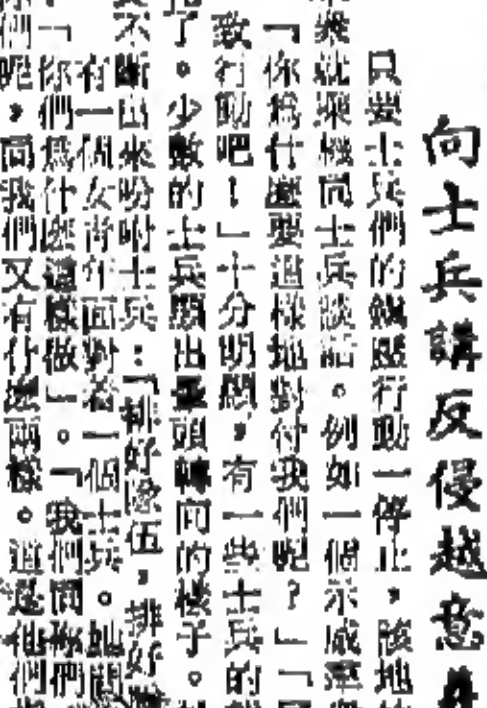 向士兵講反侵越意
只要士兵們的鎮壓行動一停止，該地
眾就乘機同士兵談話。例如一個示威羣
「你爲什麼要這樣地對付我們呢？」「
致行動吧！」十分明顯，有一些士兵的
了。少數的士兵顯出垂頭轉向的樣子。
不斷出來吩咐士兵：「排好隊伍，排好
有一個女青年面對着一個士兵。她問
「你們爲什麽這樣做」。「我們問你們
們呢，同我們又有什麽兩樣。這是他們